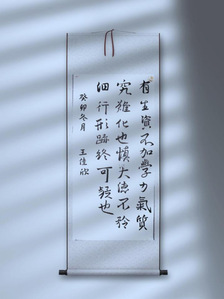 有生資不加學力氣質
究難化也慎大德不矜
細行形跡終可疑也
癸卯冬月 王德欣